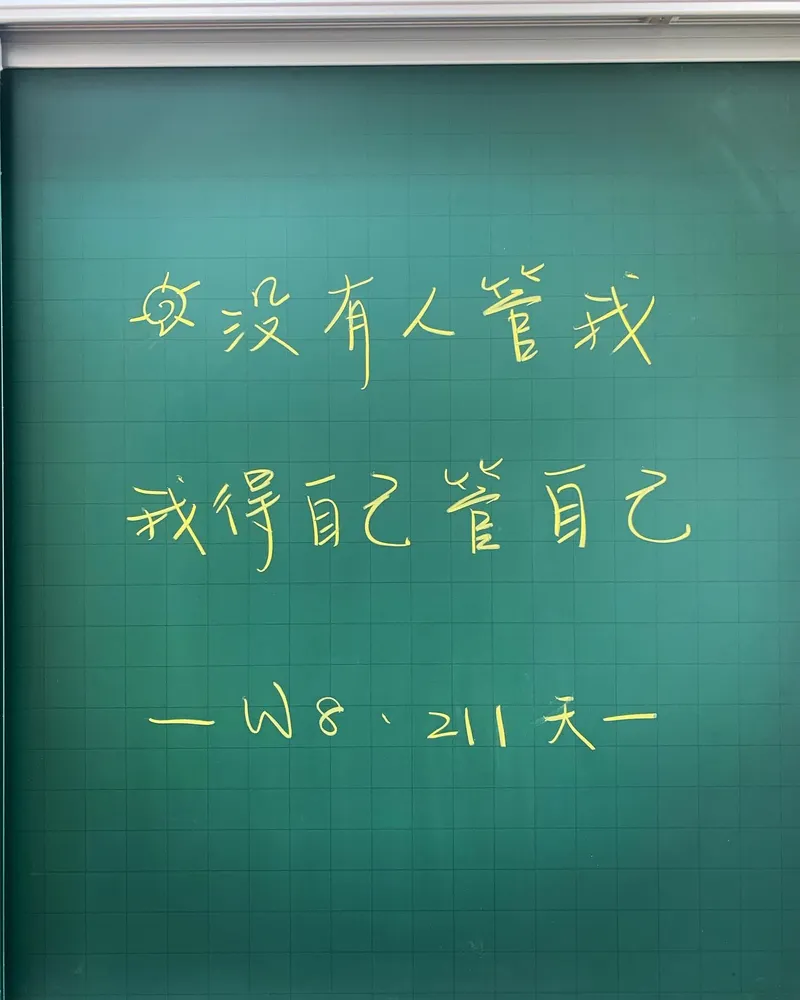 没有人管我
我得自己管自己
— W8、211天 —